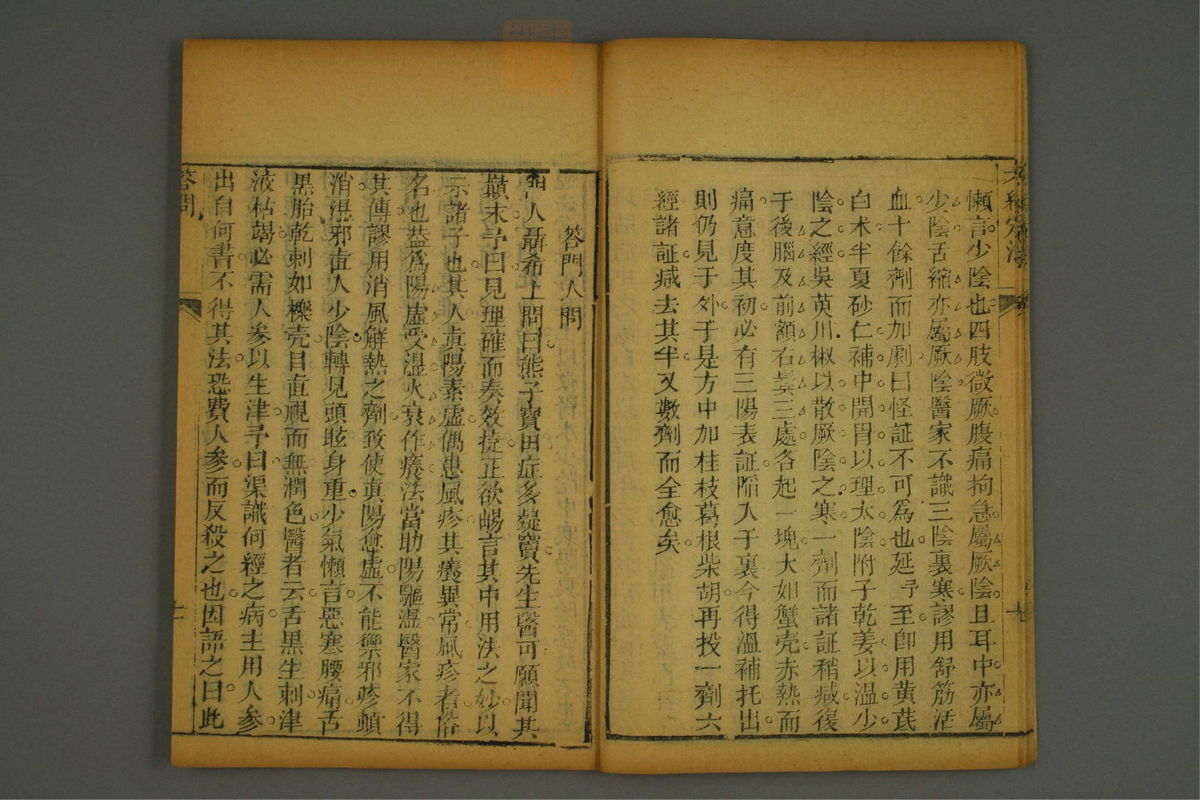 六經定法
懶言少陰也四肢微厥腹痛拘急屬厥陰且耳中亦屬
少陰舌縮亦屬厥陰醫家不識三陰裏寒謬用舒筋活
血十餘劑而加劇曰怪証不可為也延予至卽用黃芪
白朮半夏砂仁補中開胃以理太陰附子乾姜以溫少
陰之經吳茰川椒以散厥陰之寒一劑而諸証稍減復
于後腦及前額右鬓三處各起一塊大如蟹壳赤熱而
痛意度其初必有三陽表証陥入于裏今得溫補托出
則仍見于外于是方中加桂枝葛根柴胡再投一劑六
經諸証減去其半又數劑而全愈矣
答門人問
門人聶希上問曰熊子寶田症多疑竇先生醫可願聞其
巔末予曰見理確而奏效捷正欲暢言其中用法之妙以
示諸子也其人真陽素虛偶患風疹其癢異常風疹者俗
名也葢爲陽虛受濕火衰作癢法當助陽驅濕醫家不得
其傳謬用消風解熱之劑致使真陽愈虛不能禦邪疹頓
消濕邪直入少陰轉見頭眩身重少氣懶言惡寒腰痛舌
黑胎乾刺如櫟壳目直視而無潤色醫者云舌黑生刺津
液枯竭必需人參以生津予曰渠識何經之病主用人參
出自何書不得其法恐費人參而反殺之也因語之曰此
答問